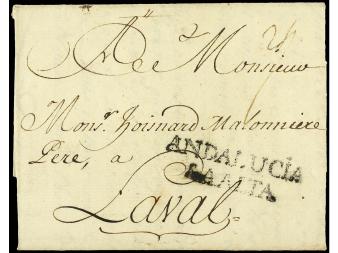 A Monsieur
Monsr. hoisnard Malonniere
Pere, a
ANDALUCÍA
BAAITA
Laval